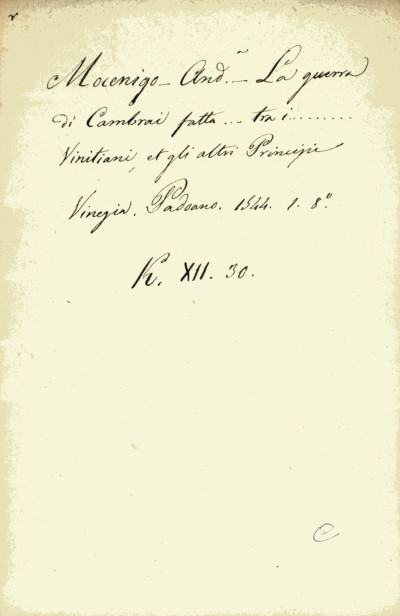 Mocenigo - And.ª - La guerra
di Cambrai fatta ... tra i .........
Vinitiani, et gli altri Principi
Vinegia. Padoano. 1544. 1. 8.º
K. XII. 30.
C